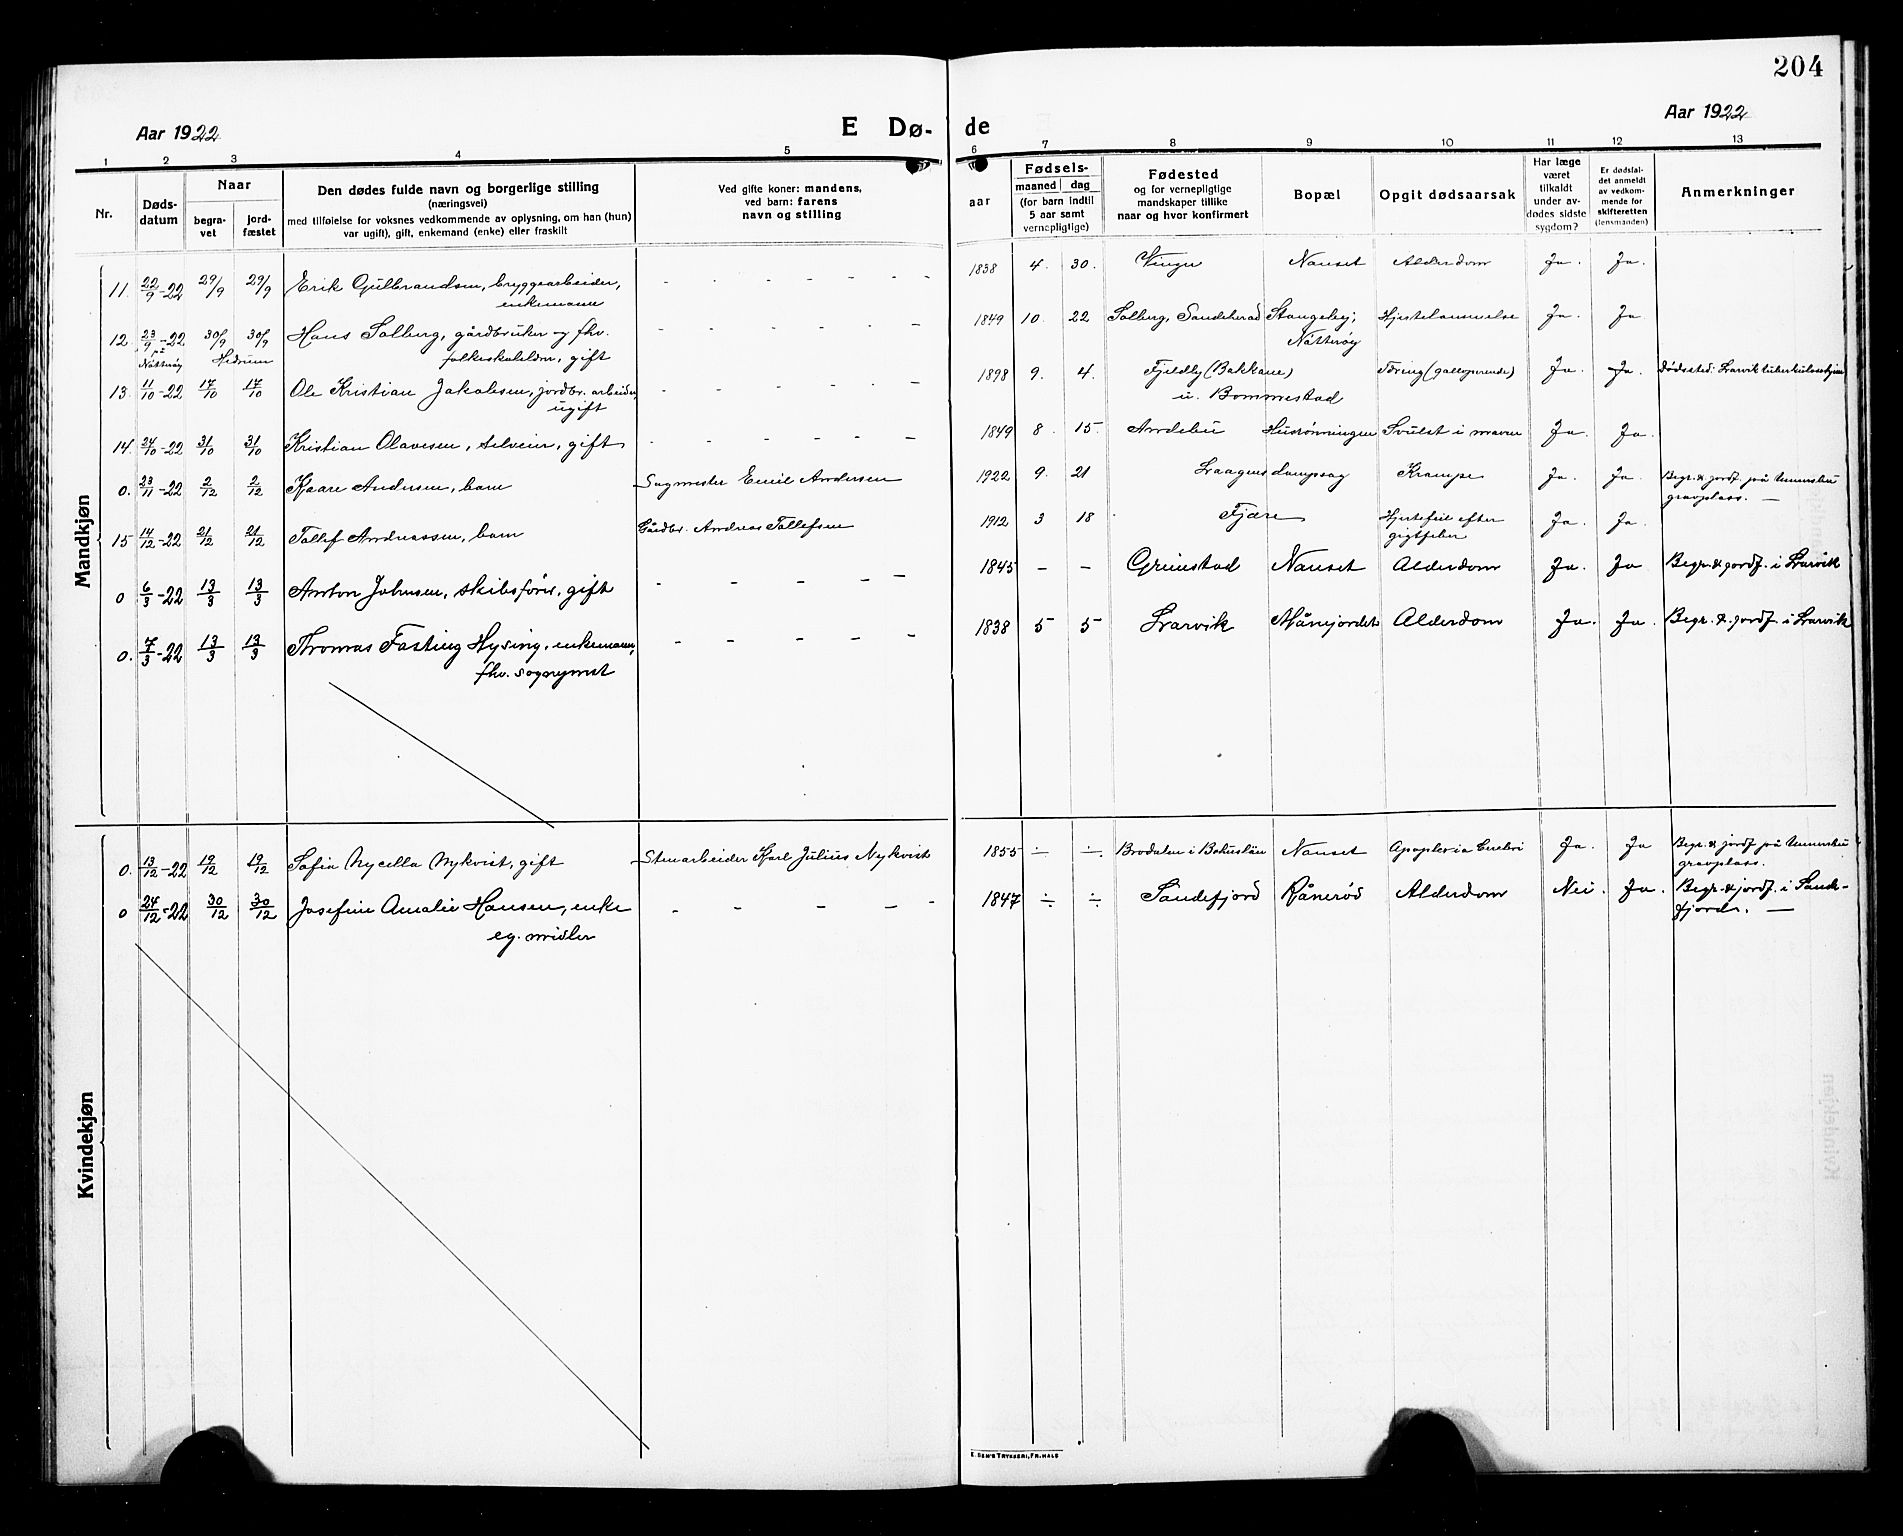 204
Aar 1922
E Dø-
de
Aar 1922
1 2 3 4 5 6 7 8 9 10 11 12 13
Nr.
Døds-
datum
Naar
begra-
vet
jord-
fæstet
Den dødes fulde navn og borgerlige stilling
(næringsvei)
med tilføielse for voksnes vedkommende av oplysning, om han (hun)
var ugift), gift, enkemand (enke) eller fraskilt
Ved gifte koner: mandens,
ved barn: farens
navn og stilling
aar
Fødsels-
maaned dag
(for barn indtil
5 aar samt
vernepligtige)
Fødested
og for vernepligtige
mandskaper tillike
naar og hvor konfirmert
Bopæl
Opgit dødsaarsak
Har læge
været
tilkaldt
under av-
dødes sidste
sygdom?
Er dødsfal-
det anmeldt
av vedkom-
mende for
skifteretten
(lensmanden)
Anmerkninger
Mandkjøn
11. 22/9-22 29/9 29/9 Erik Gulbrandsen, bryggearbeider, - - - - - 1838 4. 30. Vinger Nanset Alderdom Ja. Ja.
enkemann
12 23/9-22 30/9 30/9 Hans Solberg, gårdbruker og fhv. - - - - - 1849 10. 22 Solberg, Sandeherad Stangeby, Hjertelammelse Ja. Ja.
på Nøtterøy Hedrum folkeskolelær, gift Nøtterøy
13. 11/10-22 17/10 17/10 Ole Kristian Jakobsen, jordbr. arbeider - - - - - 1898 9. 4. Fjeldby (Bakkane) Tæring (galloperende) Ja. Ja. Dødssted: Larvik tuberkulosehjem
ugift u. Bommestad
14. 24/10-22 31/10 31/10 Kristian Olavesen, selveier, gift - - - - - 1849 8. 15. Andebu Svulst i maven Ja. Ja.
0. 23/11-22 2/12 2/12 Kaare Andersen, barn Sagmester Emil Andersen 1922 9. 21 Laagens dampsag Krampe Ja. Ja. Begr. & jordf. på
gravplass. —
15 14/12-22 21/12 21/12 Tallef Andreassen, barn Gårdbr. Andreas Tallefsen 1912 3 18 Fjære Hjertefeil efter Ja. Ja.
gigtfeber
0 6/3-22 13/3 13/3 Anton Johnsen, skibsfører, gift - - - - - 1845 - - Grimstad Nanset Alderdom Ja. Ja Begr. & jordf. i Larvik
0. 7/3-22 13/3 13/3 Thomas Fasting Hysing, enkemann, - - - - - 1838 5 5 Larvik Alderdom Ja. Ja. Begr. & jordf. i Larvik
fhv. sogneprest
Kvindekjøn
0. 13/12-22 19/12 19/12 Sofia Nykvist, gift Stenarbeider Karl Julius Nykvist 1855 ÷ ÷ Brodalen i Bohuslän Nanset Apoplexia Cerebri Ja. Ja Begr. & jordf. på
gravplass.
0 24/12-22 30/12 30/12 Josefine Amalie Hansen, enke - - - - - 1847 ÷ ÷ Sandefjord Rånerød Alderdom Nei. Ja. Begr. & jordf. i Sande-
eg. midler fjord. —
E. SEM'S TRYKKERI, FR. HALD